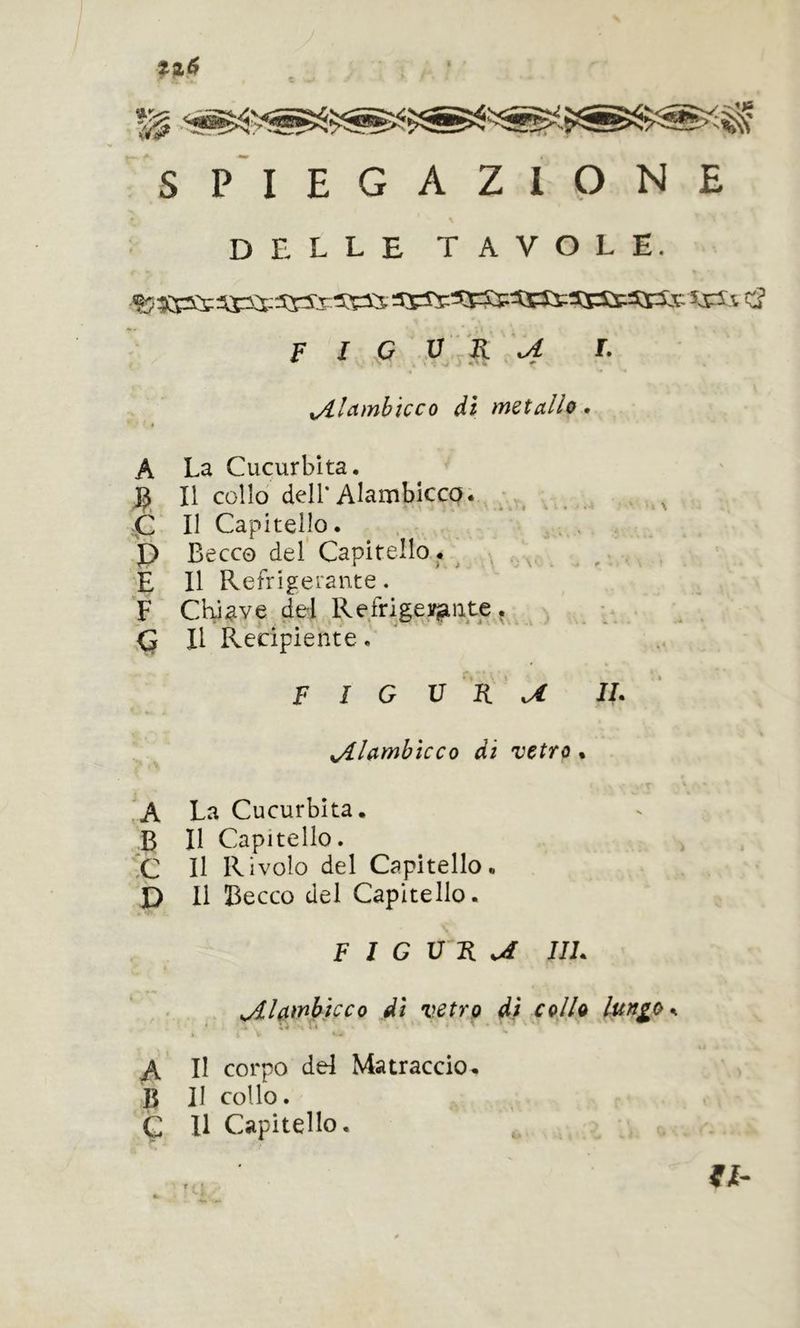 226
SPIEGAZIONE
DELLE TAVOLE.
FIGURA I.
Alambicco di metallo.
A La Cucurbita.
B Il collo dell' Alambicco.
C Il Capitello.
D Becco del Capitello.
E Il Refrigerante.
F Chiave del Refrigerante.
G Il Recipiente.
FIGURA II.
Alambicco di vetro.
A La Cucurbita.
B Il Capitello.
C Il Rivolo del Capitello.
D Il Becco del Capitello.
FIGURA III.
Alambicco di vetro di collo lungo.
A Il corpo del Matraccio.
B Il collo.
C Il Capitello.